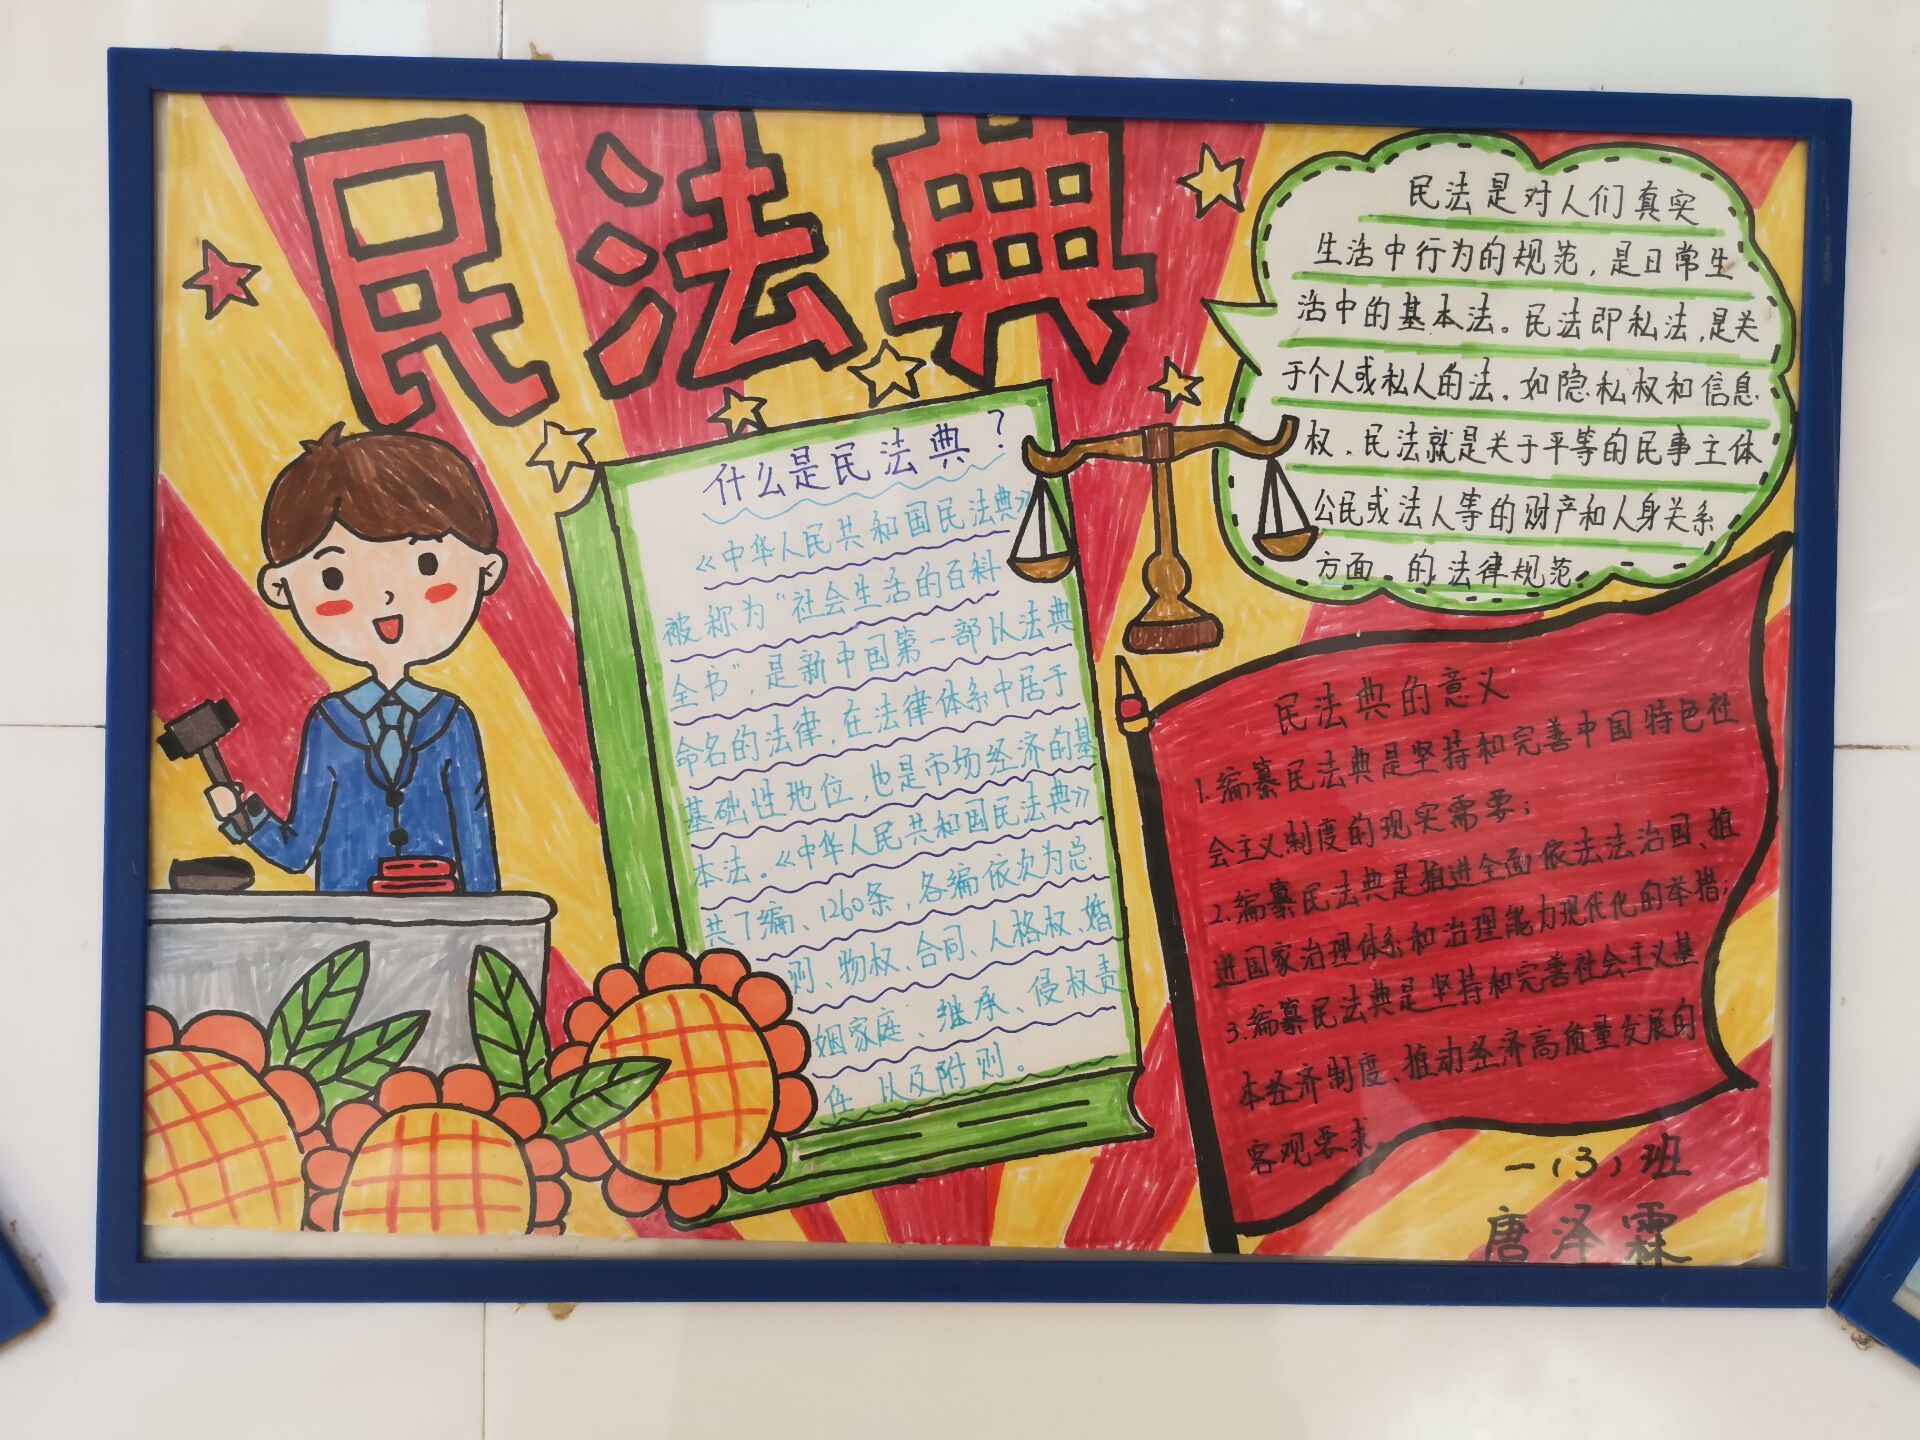 民法典
什么是民法典?
《中华人民共和国民法典》
被称为“社会生活的百科
全书”,是新中国第一部以法典
命名的法律,在法律体系中居于
基础性地位,也是市场经济的基
本法。《中华人民共和国民法典》
共7编、1260条,各编依次为总
则、物权、合同、人格权、婚
姻家庭、继承、侵权责
任 以及附则。
民法是对人们真实
生活中行为的规范,是日常生
活中的基本法。民法即私法,是关
于个人或私人的法。如隐私权和信息
权。民法就是关于平等的民事主体
公民或法人等的财产和人身关系
方面 的法律规范
民法典的意义
1.编纂民法典是坚持和完善中国特色社
会主义制度的现实需要;
2.编纂民法典是推进全面依法法治国、推
进国家治理体系和治理能力现代化的举措;
3.编纂民法典是坚持和完善社会主义基
本经济制度、推动经济高质量发展的
客观要求
一(3)班
唐泽霖